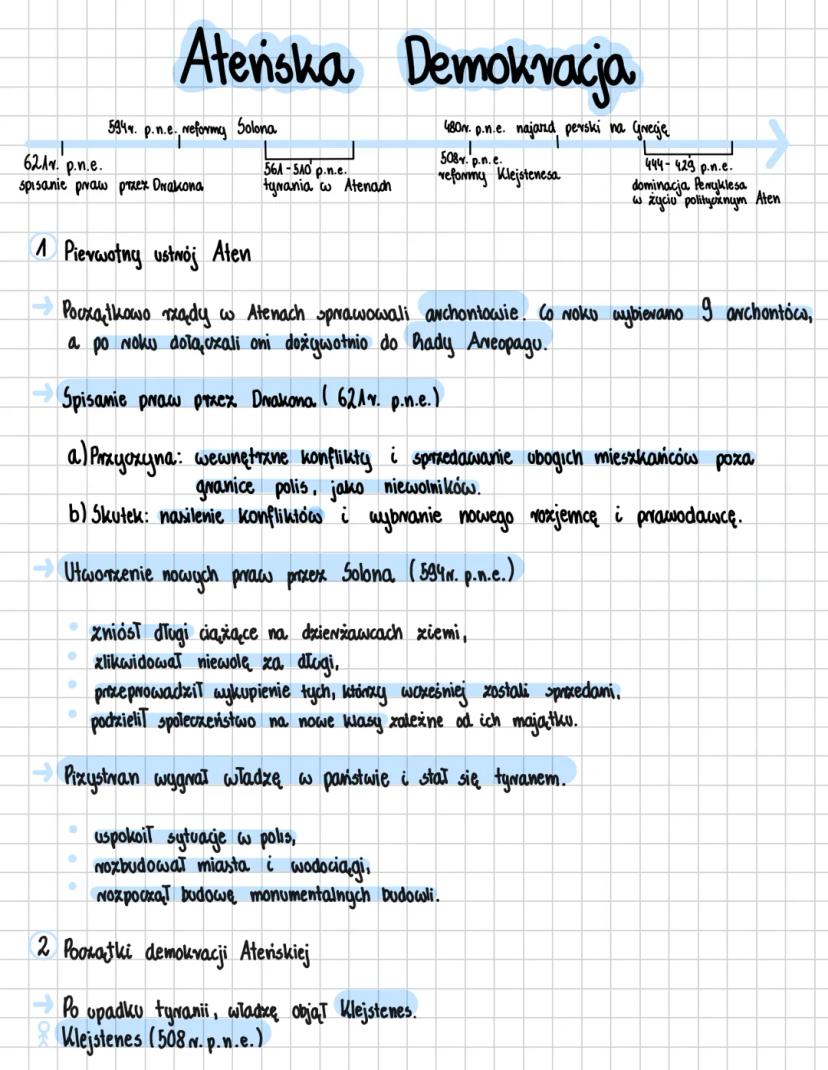 Ateńska Demokracja
594r. p.n.e. reformy Solona
480r. p.n.e. najazd perski na Grecję
621r. p.n.e.
spisanie praw przez Drakona
561-510 p.n.e.
tyrania w Atenach
508r. p.n.e.
reformy Klejstenesa
444-429 p.n.e.
dominacja Peryklesa
w życiu politycznym Aten
1 Pierwotny ustrój Aten
→ Początkowo rządy w Atenach sprawowali archontowie. Co roku wybierano 9 archontów,
a po roku dołączali oni dożywotnio do Rady Areopagu.
→ Spisanie praw przez Drakona (621r. p.n.e.)
a) Przyczyna: wewnętrzne konflikty i sprzedawanie ubogich mieszkańców poza
granice polis, jako niewolników.
b) Skutek: nasilenie konfliktów i wybranie nowego rozjemcę i prawodawcę.
→ Utworzenie nowych praw przez Solona (594r. p.n.e.)
• zniósł długi ciążące na dzierżawcach ziemi,
• zlikwidował niewolę za długi,
• przeprowadził wykupienie tych, którzy wcześniej zostali sprzedani,
• podzielił społeczeństwo na nowe klasy zależne od ich majątku.
→ Pizystrat wygrał władzę w państwie i stał się tyranem.
• uspokoił sytuacje w polis,
• rozbudował miasta i wodociągi,
• rozpoczął budowę monumentalnych budowli.
2 Początki demokracji Ateńskiej
→ Po upadku tyranii, władzę objął Klejstenes.
Klejstenes (508 r. p.n.e.)